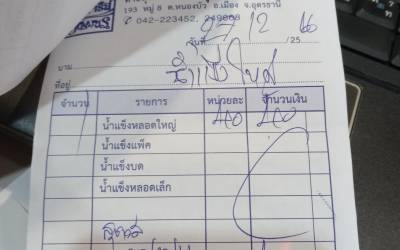 193 หมู่ 8 ต.หนองบัว อ.เมือง จ.อุดรธานี
042-223452, 249668
วันที่ 12 /25 66
นาม น้ำแข็งใหม่
ที่อยู่
จำนวน รายการ หน่วยละ จำนวนเงิน
1 น้ำแข็งหลอดใหญ่ 40 40
น้ำแข็งแพ็ค
น้ำแข็งบด
น้ำแข็งหลอดเล็ก